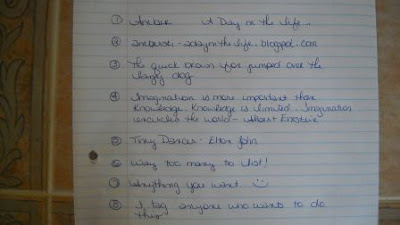 ① Amber A Day in the Life...
② adayinthelife.blogspot.com
③ The quick brown fox jumped over the
lazy dog
④ Imagination is more important than
Knowledge. Knowledge is limited. Imagination
encircles the world - Albert Einstein
⑤ Tiny Dancer - Elton John
⑥ Way too many to list!
⑦ Anything you want. ☺
⑧ I tag anyone who wants to do
this